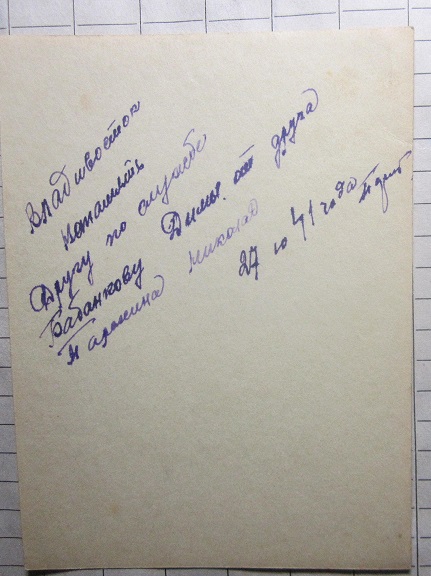 Владивосток
на память
Другу по службе
Бабанкову Диме. от друга
Паромина Николая
27 10 41 года